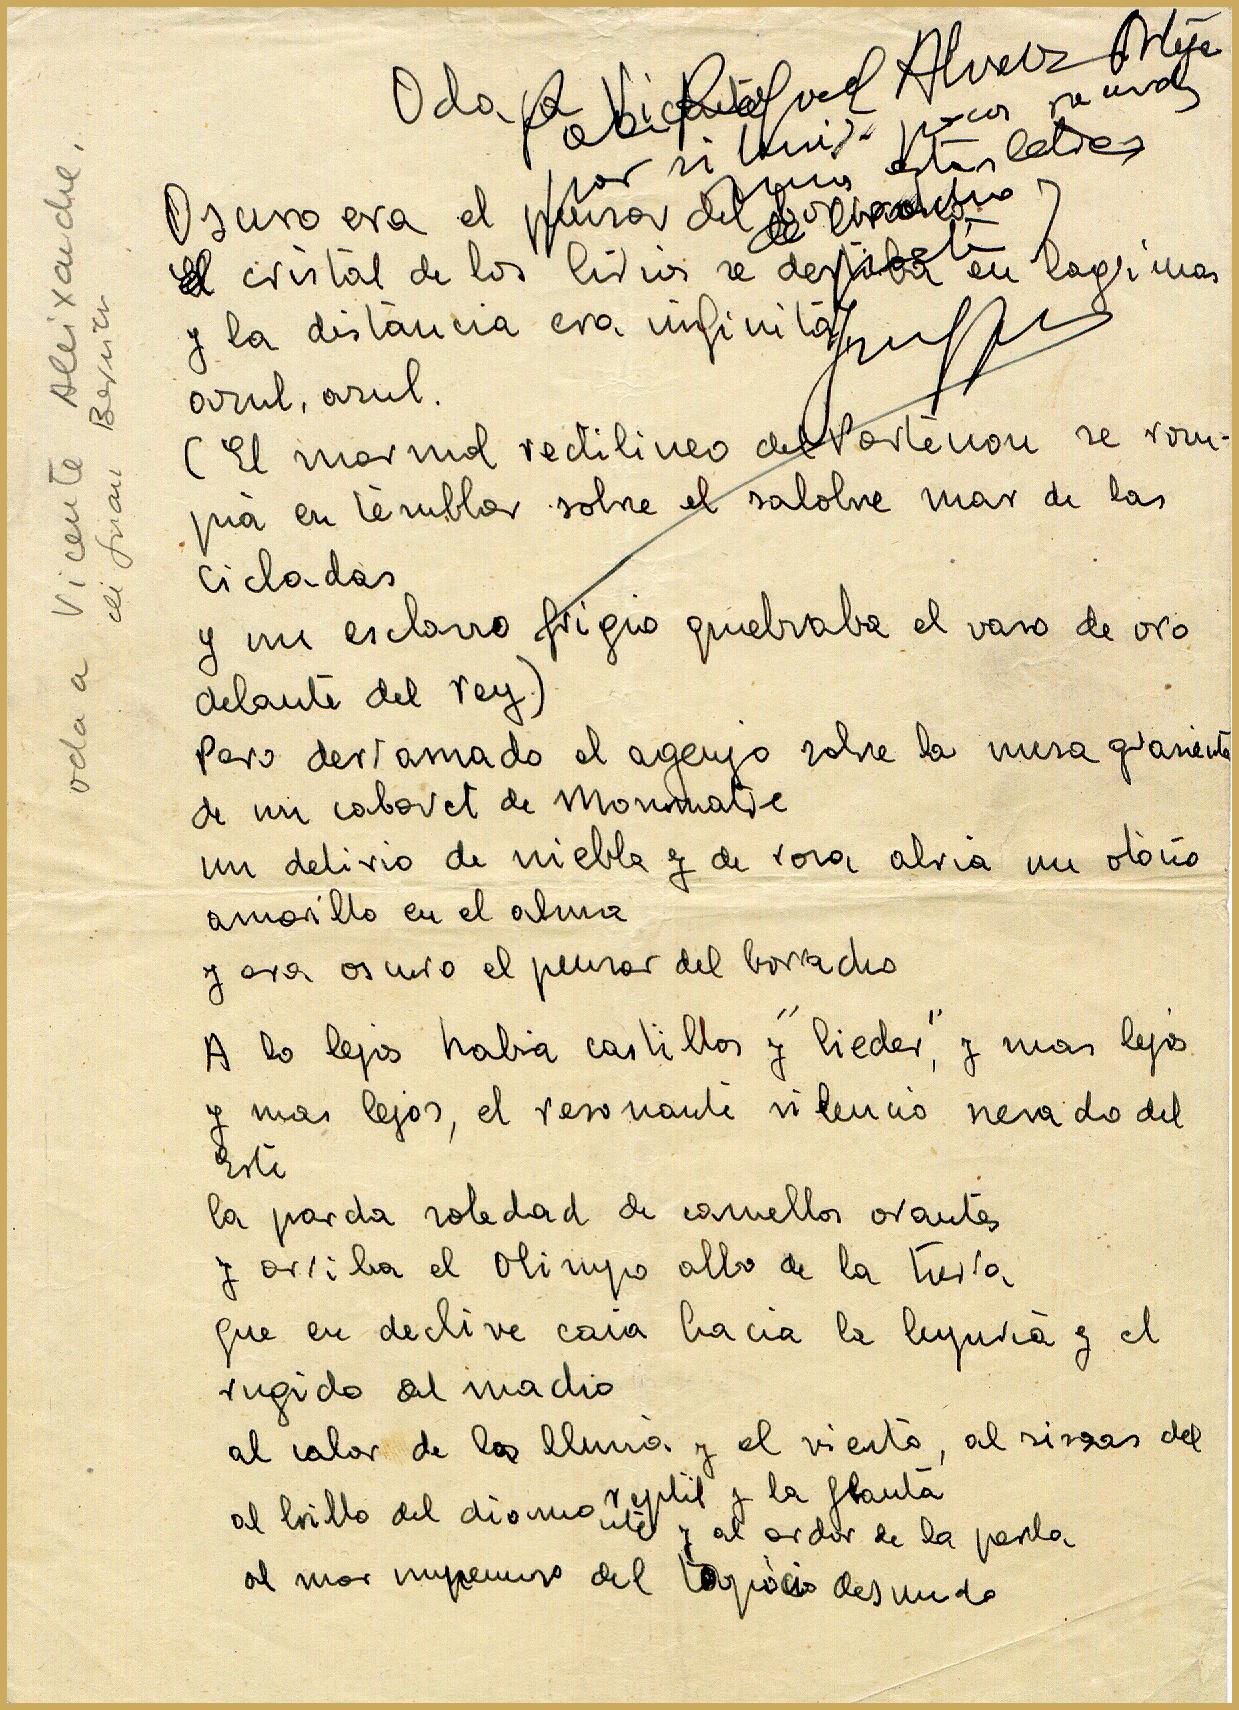 Oda a Vicente
a Miguel Alvarez Ortega
por si unis pocos
estas letras
Oscuro era el pensar del borracho
El cristal de los lirios se desfloraba en lagrimas
y la distancia era infinita
azul, azul.
(El marmol rectilineo del Partenon se rom-
pia en temblor sobre el salobre mar de las
cicladas
y un esclavo frigio quebraba el vaso de oro
delante del rey)
Pero derramado el agenjo sobre la mesa grasienta
de un cabaret de Monmatre
un delirio de niebla y de rosa abria un otoño
amarillo en el alma
y era oscuro el pensar del borracho
A lo lejos habia castillos y "lieder", y mas lejos
y mas lejos, el resonante silencio nevado del
Este
la parda soledad de camellos orantes
y arriba el Olimpo albo de la tierra
que en declive caia hacia la lujuria y el
rugido del macho
al calor de la lluvia y el viento, al sisear del
reptil y la flauta
al brillo del diamante y al ardor de la perla
al mar del topacio desnudo
oda a Vicente Aleixandre,
de Juan Bernier